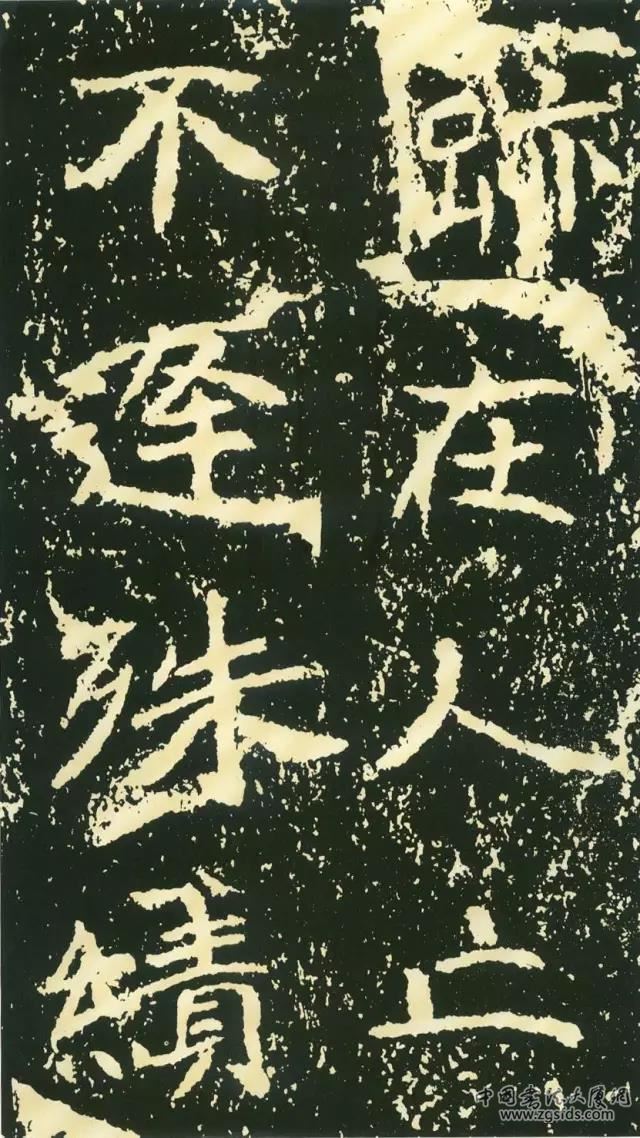 跡在人亡
不逢殊績
中国书法大厦网
www.zgsids.com